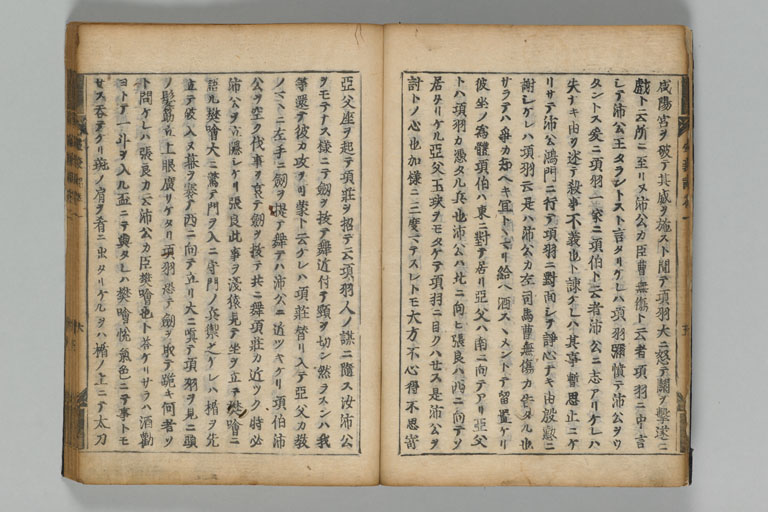 咸陽宮ヲ破テ其威ヲ施スト聞テ項羽大ニ怒テ關ヲ擊遂ニ
戲ト云所ニ至リヌ沛公カ臣曹無傷ト云者項羽ニ申言
シテ沛公王タラントスト言タリケレハ項羽彌憤テ沛公ヲウ
タントス爰ニ項羽一家ニ項伯ト云者沛公ニ志アリケレハ
失ナキ由ヲ述テ殺事不義也ト諫ケレハ其事暫思止ニケ
リサテ沛公鴻門ニ行テ項羽ニ對面シテ諍心ナキ由慇懃ニ
謝シケレハ項羽云是ハ沛公カ左司馬曹無傷カ告タル也
サラテハ爭カ却ヘキ宜トヽマリ給ヘ酒スヽメントテ留置ケリ
彼坐ノ爲體項伯ハ東ニ對テ居リ亞父ハ南ニ向テアリ亞父
トハ項羽カ憑タル兵也沛公ハ北ニ向ヒ張良ハ西ニ向テソ
居タリケル亞父玉玦ヲモタケテ項羽ニ目クハセス是沛公ヲ
討トノ心也加樣ニ三度マテスレトモ大方不心得不思寄
亞父座ヲ起テ項莊ヲ招テ云項羽人ノ謀ニ隨ス汝沛公
ヲモテナス樣ニテ劔ヲ拔テ舞近付テ頸ヲ切シ然ラスンハ我
等還テ彼カ攻ヲ蒙ト云ケレハ項莊替リ入テ亞父カ敎
ノマヽニ左手ニ劔ヲ提テ舞テハ沛公ニ近ツキケリ項伯沛
公ヲ空ク伐事ヲ哀テ劔ヲ拔テ共ニ舞項莊カ近ツク時必
沛公ヲ立隱シケリ張良此事ヲ淺猿見テ坐ヲ立テ樊噲ニ
語ル樊噲大ニ驚テ門ヲ入ニ守門ノ兵禦之ケレハ楯ヲ先
立テ破入ヌ幕ヲ褰テ西ニ向テ立リ大ニ嗔テ項羽ヲ見ニ頭
ノ髮筋立上眼廣リケタリ項羽恐テ劔ヲ取テ跪キ何者ソ
ト問ケレハ張良カ云沛公カ臣樊噲也ト答ケリサラハ酒勸
ヨトテ一斗ヲ入ル盃ニテ與タレハ樊噲悅氣色ニテ事トモ
セス呑テケリ猪ノ肩ヲ肴ニ出タリケルヲハ楯ノ上ニテ太刀